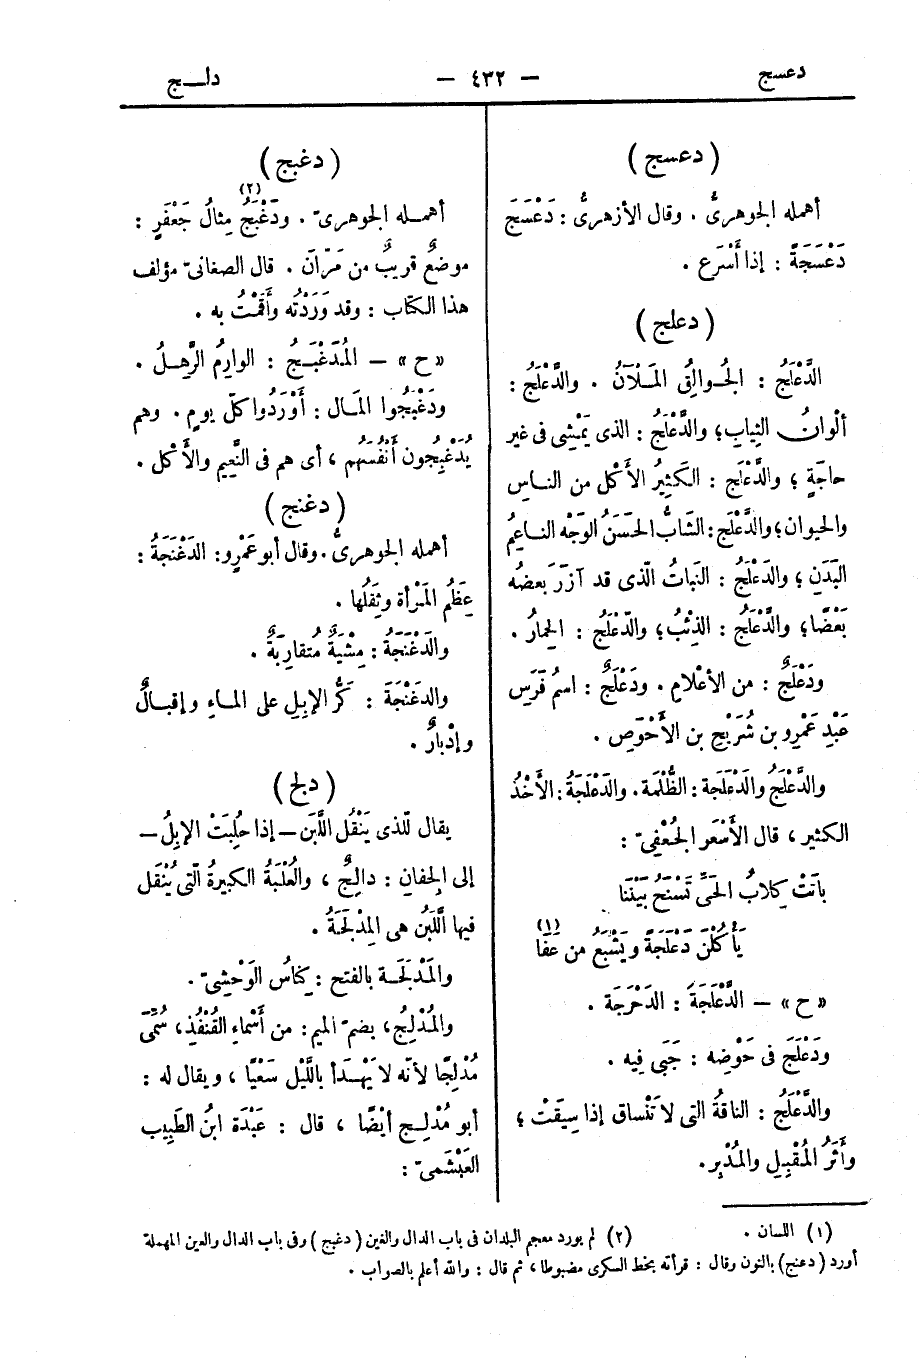 دعسج — ٤٣٢ — دلـــج
( دعسج )
أهمله الجوهرىُّ . وقال الأزهرىُّ : دَعْسَجَ
دَعْسَجَةً : إذا أَسْرَع .
( دعلج )
الدَّعْلَجُ : الجُـوالِقُ المَـلْآنُ . والدَّعْلَجُ :
ألْوانُ الثِيابِ؛ والدَّعْلَجُ : الذى يَمْشِى فى غير
حاجَةٍ ؛ والدَّعْلَج : الكَثِيرُ الأَكْل من النـاس
والحيوان؛ والدَّعْلَج : الشَابُّ الحَسَنُ الوَجْه الناعِمُ
البَدَنِ ؛ والدَّعْلَجُ : النَباتُ الّذى قد آزَرَ بَعضُه
بَعْضًا؛ والدَّعْلَجُ : الذِئْبُ؛ والدّعْلَجُ : الحِمارُ .
ودَعْلَجٌ : من الأعْلامِ . ودَعْلَجٌ : اسمُ فَرَسِ
عَبْدِ عَمْرِو بن شُرَيْحِ بن الأَحْوَصِ .
والدَّعْلَجُ والدَعْلَجة : الظُلْمَة . والدَعْلَجَةُ : الأَخْذُ
الكثير ، قال الأَسْعَر الجُعْفِىّ :
باتَتْ كِلابُ الحَىِّ تَسْنَحُ بَيْنَنا
يَأْكُلْنَ دَعْلَجَةً ويَشْبَعُ من عَفَا (١)
« ح » — الدَّعْلَجَةُ : الدَحْرَجَة .
ودَعْلَجَ فى حَوْضِه : جَبَى فيه .
والدَّعْلَجُ : الناقةُ التى لا تَنْساق إذا سِيقَتْ ؛
وأَثَرُ المُقْبِلِ والمُدْبِر .
( دغبج )
أهمـله الجوهرىّ . ودَغْبَجٌ (٢) مِثالُ جَعْفَرٍ :
موضعٌ قريبٌ من مَرّانَ . قال الصغانىّ مؤلف
هذا الكتاب : وقد وَرَدْتُه وأَقَمْتُ به .
« ح » — المُدَغْبَـجُ : الوارِمُ الرَّهِـلُ .
ودَغْبَجُوا المَـال : أَوْرَدُوا كلّ يوم . وهم
يُدَغْبِجُون أَنْفُسَهُم ، أى هم فى النَّعِيم والأَكْل .
( دغنج )
أهمله الجوهرىُّ . وقال أبو عَمْرٍو : الدَغْنَجَةُ :
عِظَمُ المَرْأة وثِقَلُها .
والدَغْنَجَةُ : مِشْيَةٌ مُتقارِبَةٌ .
والدغْنَجَة : كَرُّ الإبِلِ على المـاءِ وإقبـالٌ
وإدْبارٌ .
( دلج )
يقال للّذى يَنْقُل اللَّبَن — إذا حُلِبَتْ الإبِلُ —
إلى الجِفانِ : دالِجٌ ، والعُلْبَةُ الكبيرةُ الّتى يُنْقَل
فيها اللَّبَنُ هى المِدْلَجَةُ .
والمَدْلَجَـة بالفتح : كِناسُ الوَحْشِىّ .
والمُدْلِجُ ، بضم الميم : من أَسْماءِ القُنْفُذ ، سُمِّىَ
مُدْلِجًا لأنّه لا يَهْـدَأ باللَّيْل سَعْيًا ، ويقال له :
أبو مُدْلِـجٍ أيْضًا ، قال : عَبْدَة ابنُ الطَبِيب
العَبْشَمىّ :
(١) اللسان . (٢) لم يورد معجم البلدان فى باب الدال والغين ( دغبج ) وفى باب الدال والعين المهملة
أورد ( دعنج ) بالنون وقال : قرأته بخط السكرى مضبوطا ، ثم قال : والله أعلم بالصواب .